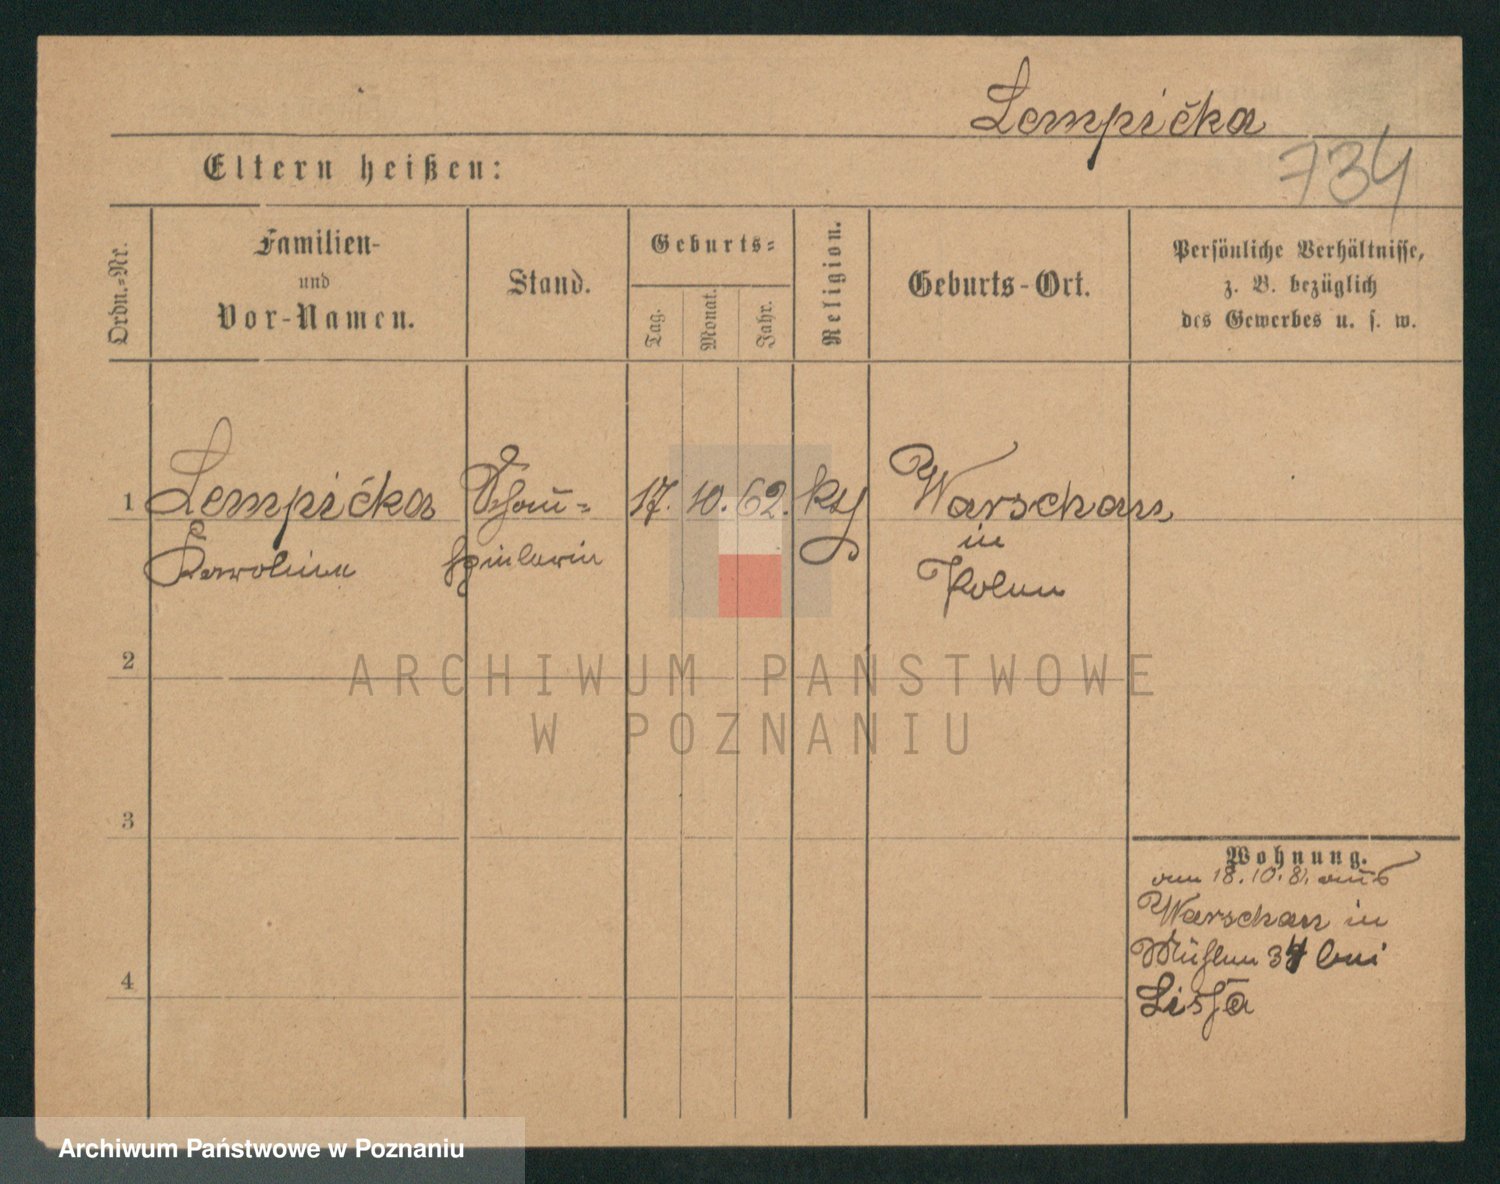 Lempička
734
Eltern heißen:
Ordn.-Nr.
Familien-
und
Vor-Namen.
Stand.
Geburts-
Tag.
Monat.
Jahr.
Religion.
Geburts-Ort.
Persönliche Verhältnisse,
z. B. bezüglich
des Gewerbes u. s. w.
1 Lempička Schau- 17. 10. 62. Warschau
in
Karoline spielerin Polen
2
ARCHIWUM PAŃSTWOWE
W POZNANIU
3
4
Wohnung.
18.10.81. aus
Warschau in
Mühlen 34 bei
Archiwum Państwowe w Poznaniu